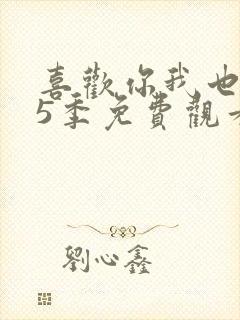 喜歡你我也
5季免費觀看
劉心鑫